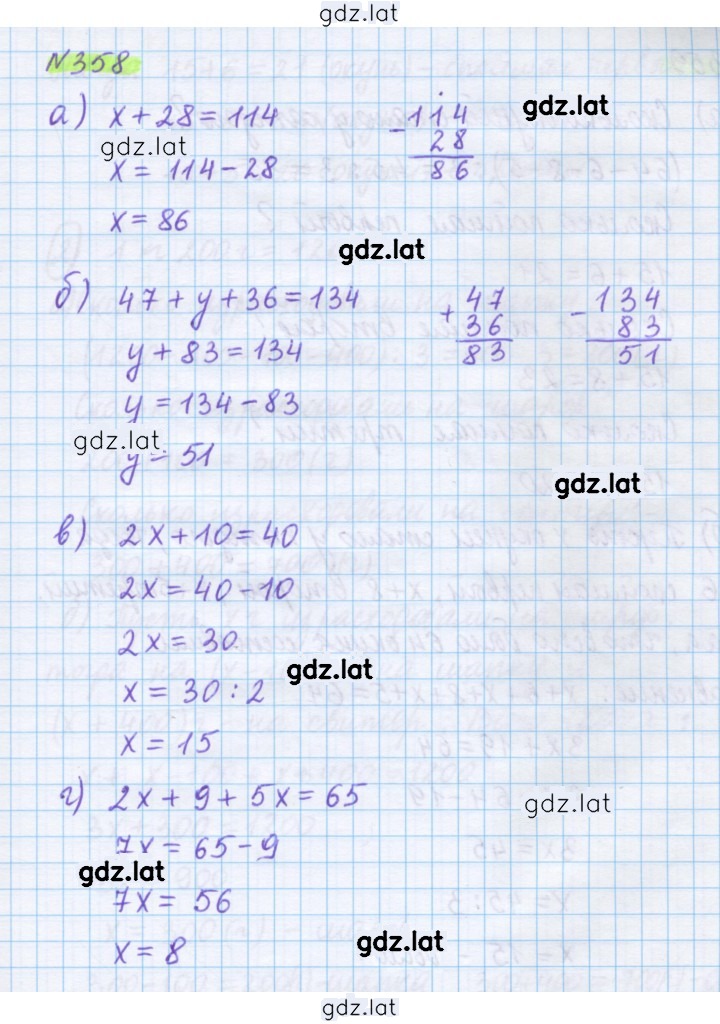 gdz.lat
N358
а) x + 28 = 114
gdz.lat
x = 114 - 28
x = 86
- 114
28
86
gdz.lat
gdz.lat
б) 47 + y + 36 = 134
y + 83 = 134
y = 134 - 83
gdz.lat
y = 51
+ 47
36
83
- 134
83
51
gdz.lat
в) 2x + 10 = 40
2x = 40 - 10
2x = 30
gdz.lat
x = 30 : 2
x = 15
г) 2x + 9 + 5x = 65
gdz.lat
7x = 65 - 9
gdz.lat
7x = 56
x = 8
gdz.lat
gdz.lat